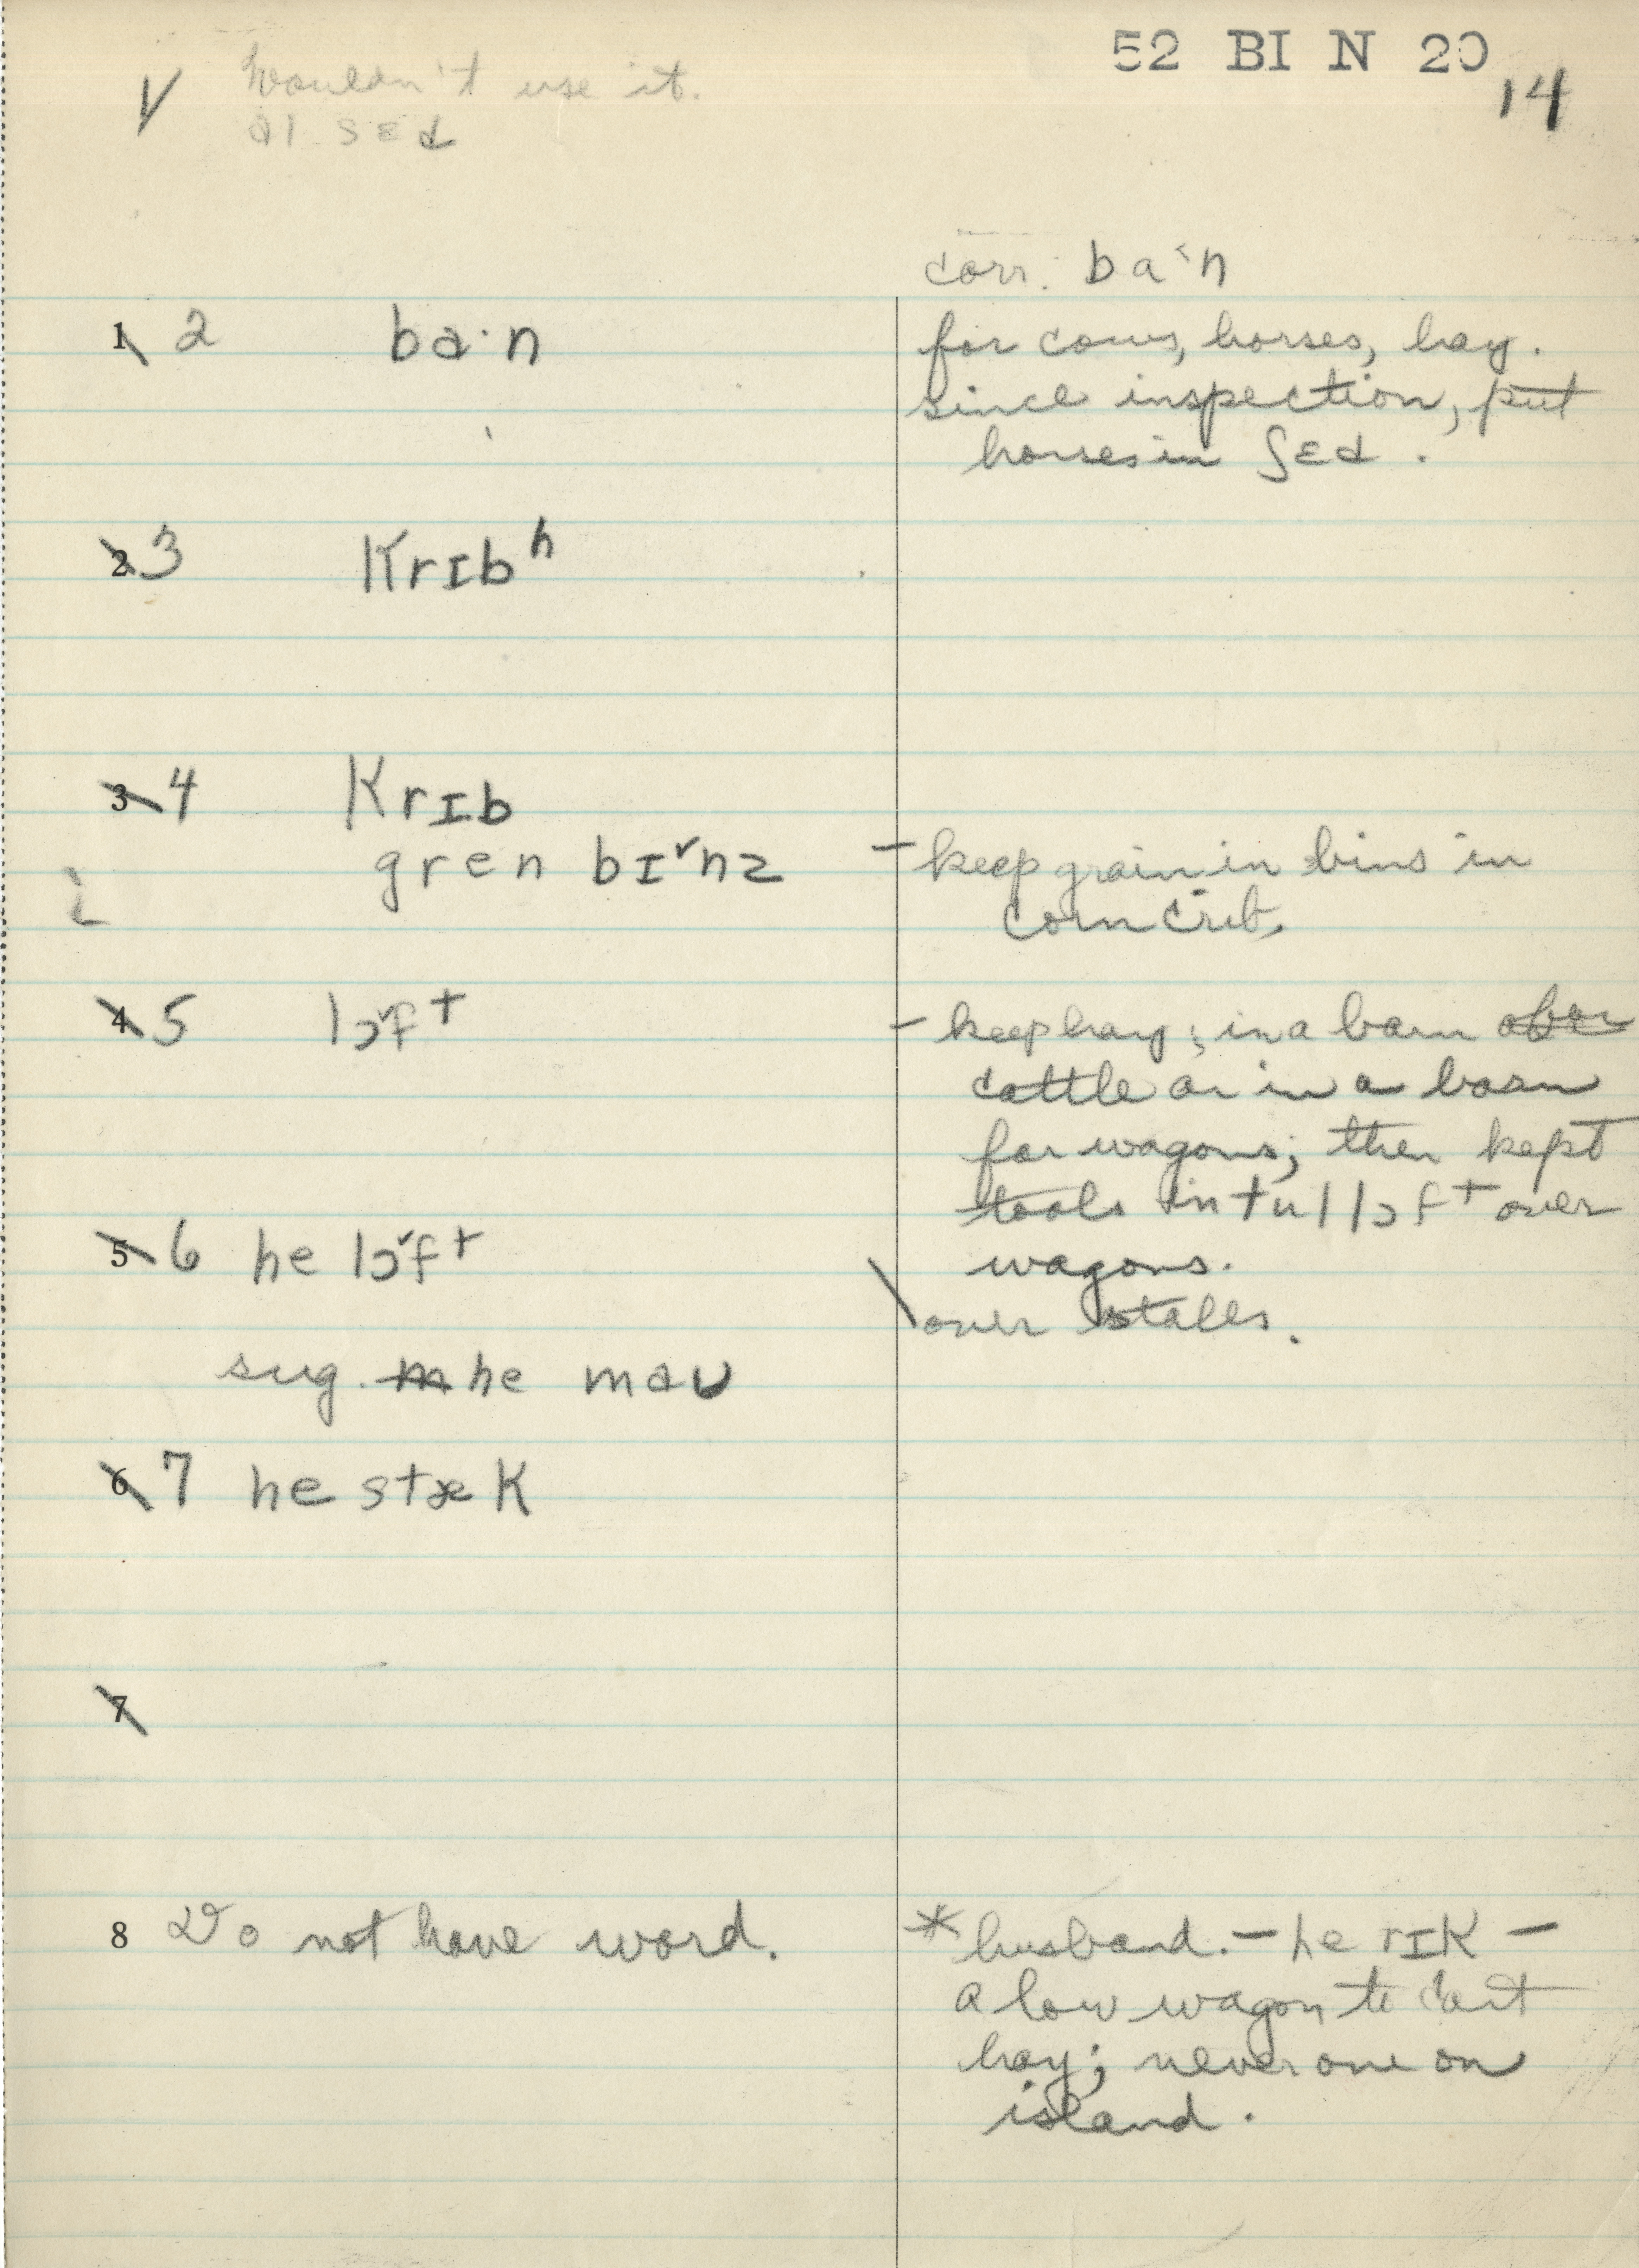 52 BI N 20
14
√ Wouldn't use it.
aɪ sɛd
corr. ba˴n
1 2 ba·n
for cows, horses, hay.
since inspection, put
horses in ʃɛd.
2 3 krɪbʰ
3 4 krɪb
gren bɪ˅nz
– keep grain in bins in
corn crib.
4 5 lɔ˅ft
– keep hay; in a barn
cattle or in a barn
for wagons; then kept
tools in tul lɔft over
wagons.
5 6 he lɔ˅ft
\ over stalls.
sug. m he maʊ
6 7 he stæk
7
8 Do not have word.
* husband. – he rɪk –
a low wagon to cart
hay; never one on
island.